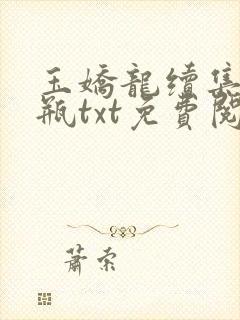 玉嬌龍續集
瓶txt免費閱
蕭索